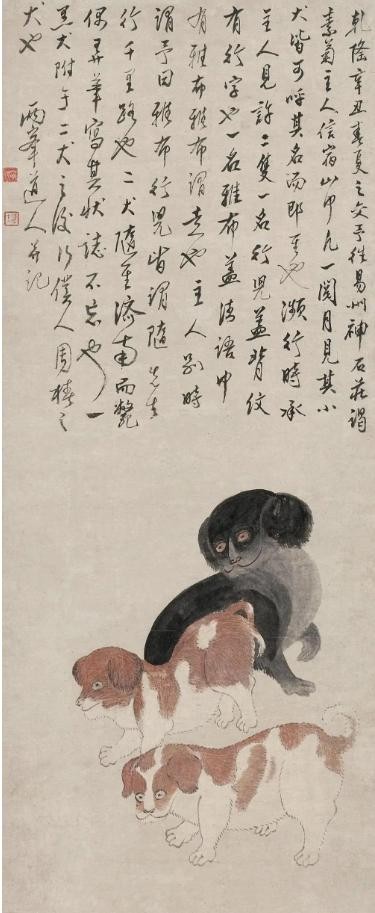 乾隆辛丑春夏之交予往易州神石莊謁
素菊主人信宿山中凡一閱月見其小
犬皆可呼其名而即至也瀕行時承
主人見許二隻一名行兒蓋背紋
有行字也一名雅布蓋清語中
有雅布雅布謂走也主人別時
謂予曰雅布行兒皆謂隨先生
行千里路也二犬隨至濟南而斃
偶弄筆寫其狀誌不忘也一
黑犬附于二犬之後乃僕人周椿之
犬也
兩峯道人并記